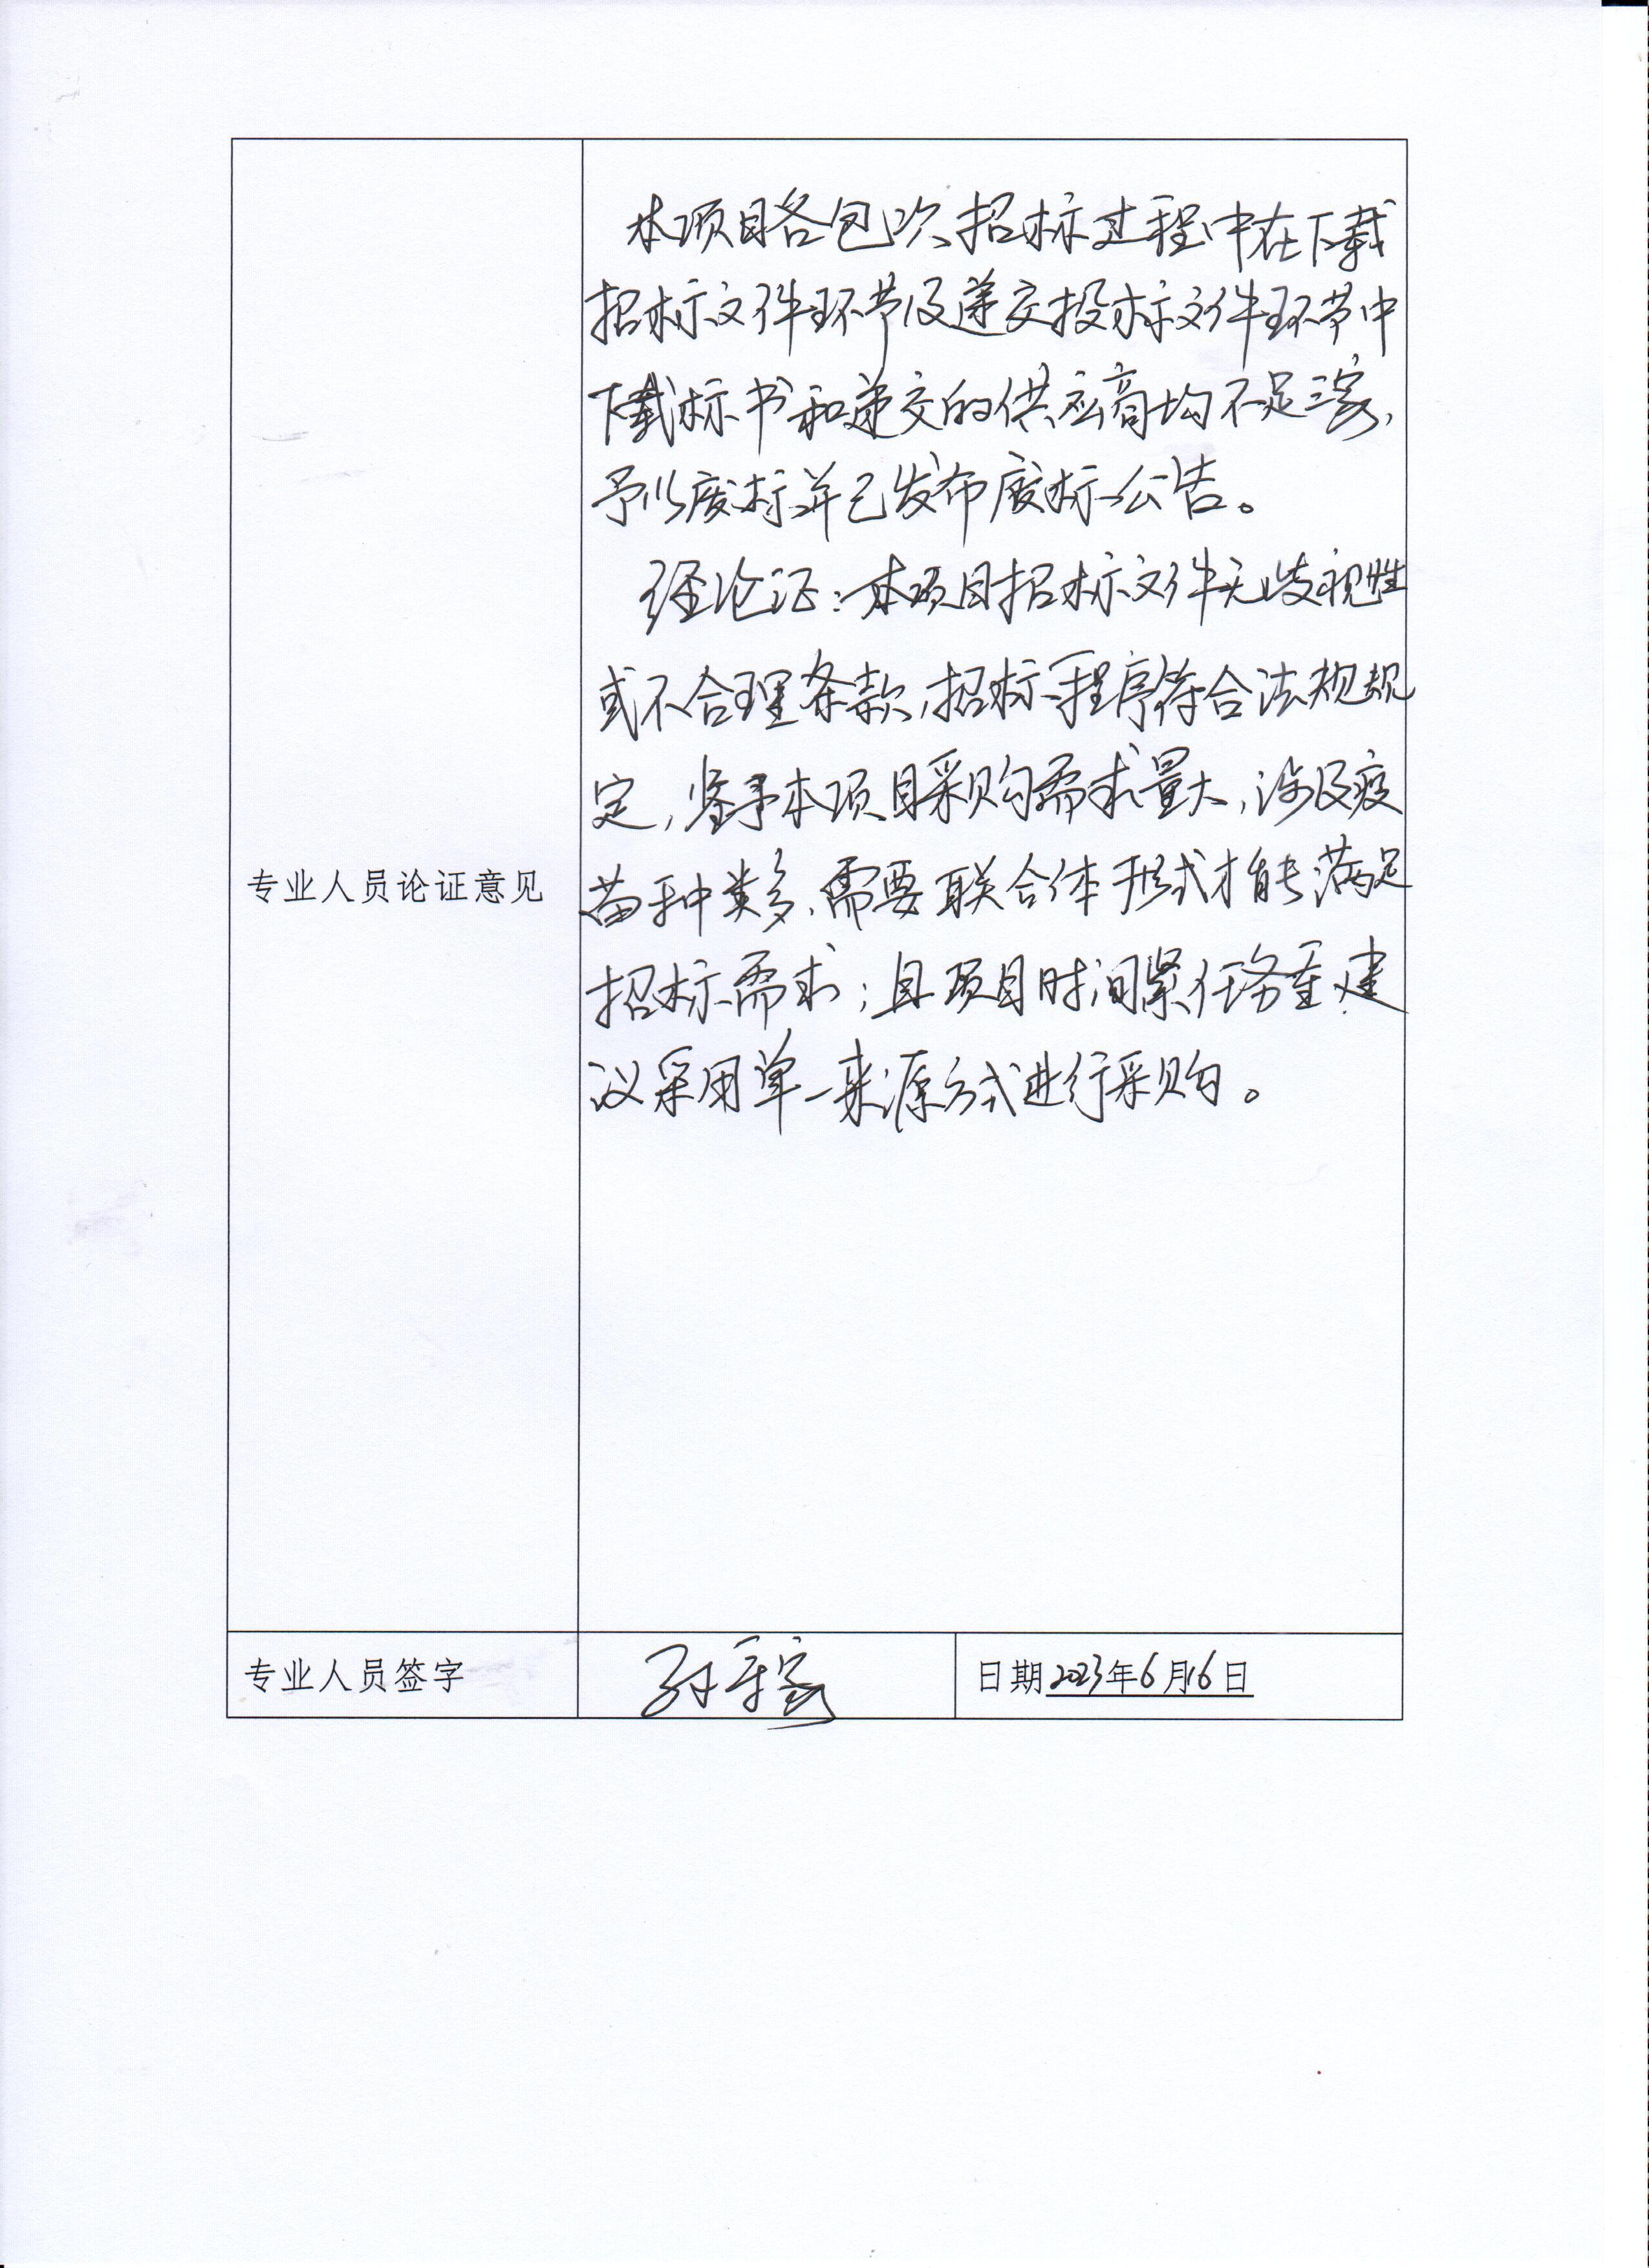 本项目各包次招标过程中在下载
招标文件环节及递交投标文件环节中
下载标书和递交的供应商均不足三家，
予以废标并已发布废标公告。
经论证：本项目招标文件无歧视性
或不合理条款，招标程序符合法规规
定，鉴于本项目采购需求量大，涉及疫
苗种类多，需要联合体形式才能满足
招标需求；且项目时间紧任务重建
议采用单一来源方式进行采购。
专业人员论证意见
专业人员签字
日期2023年6月16日